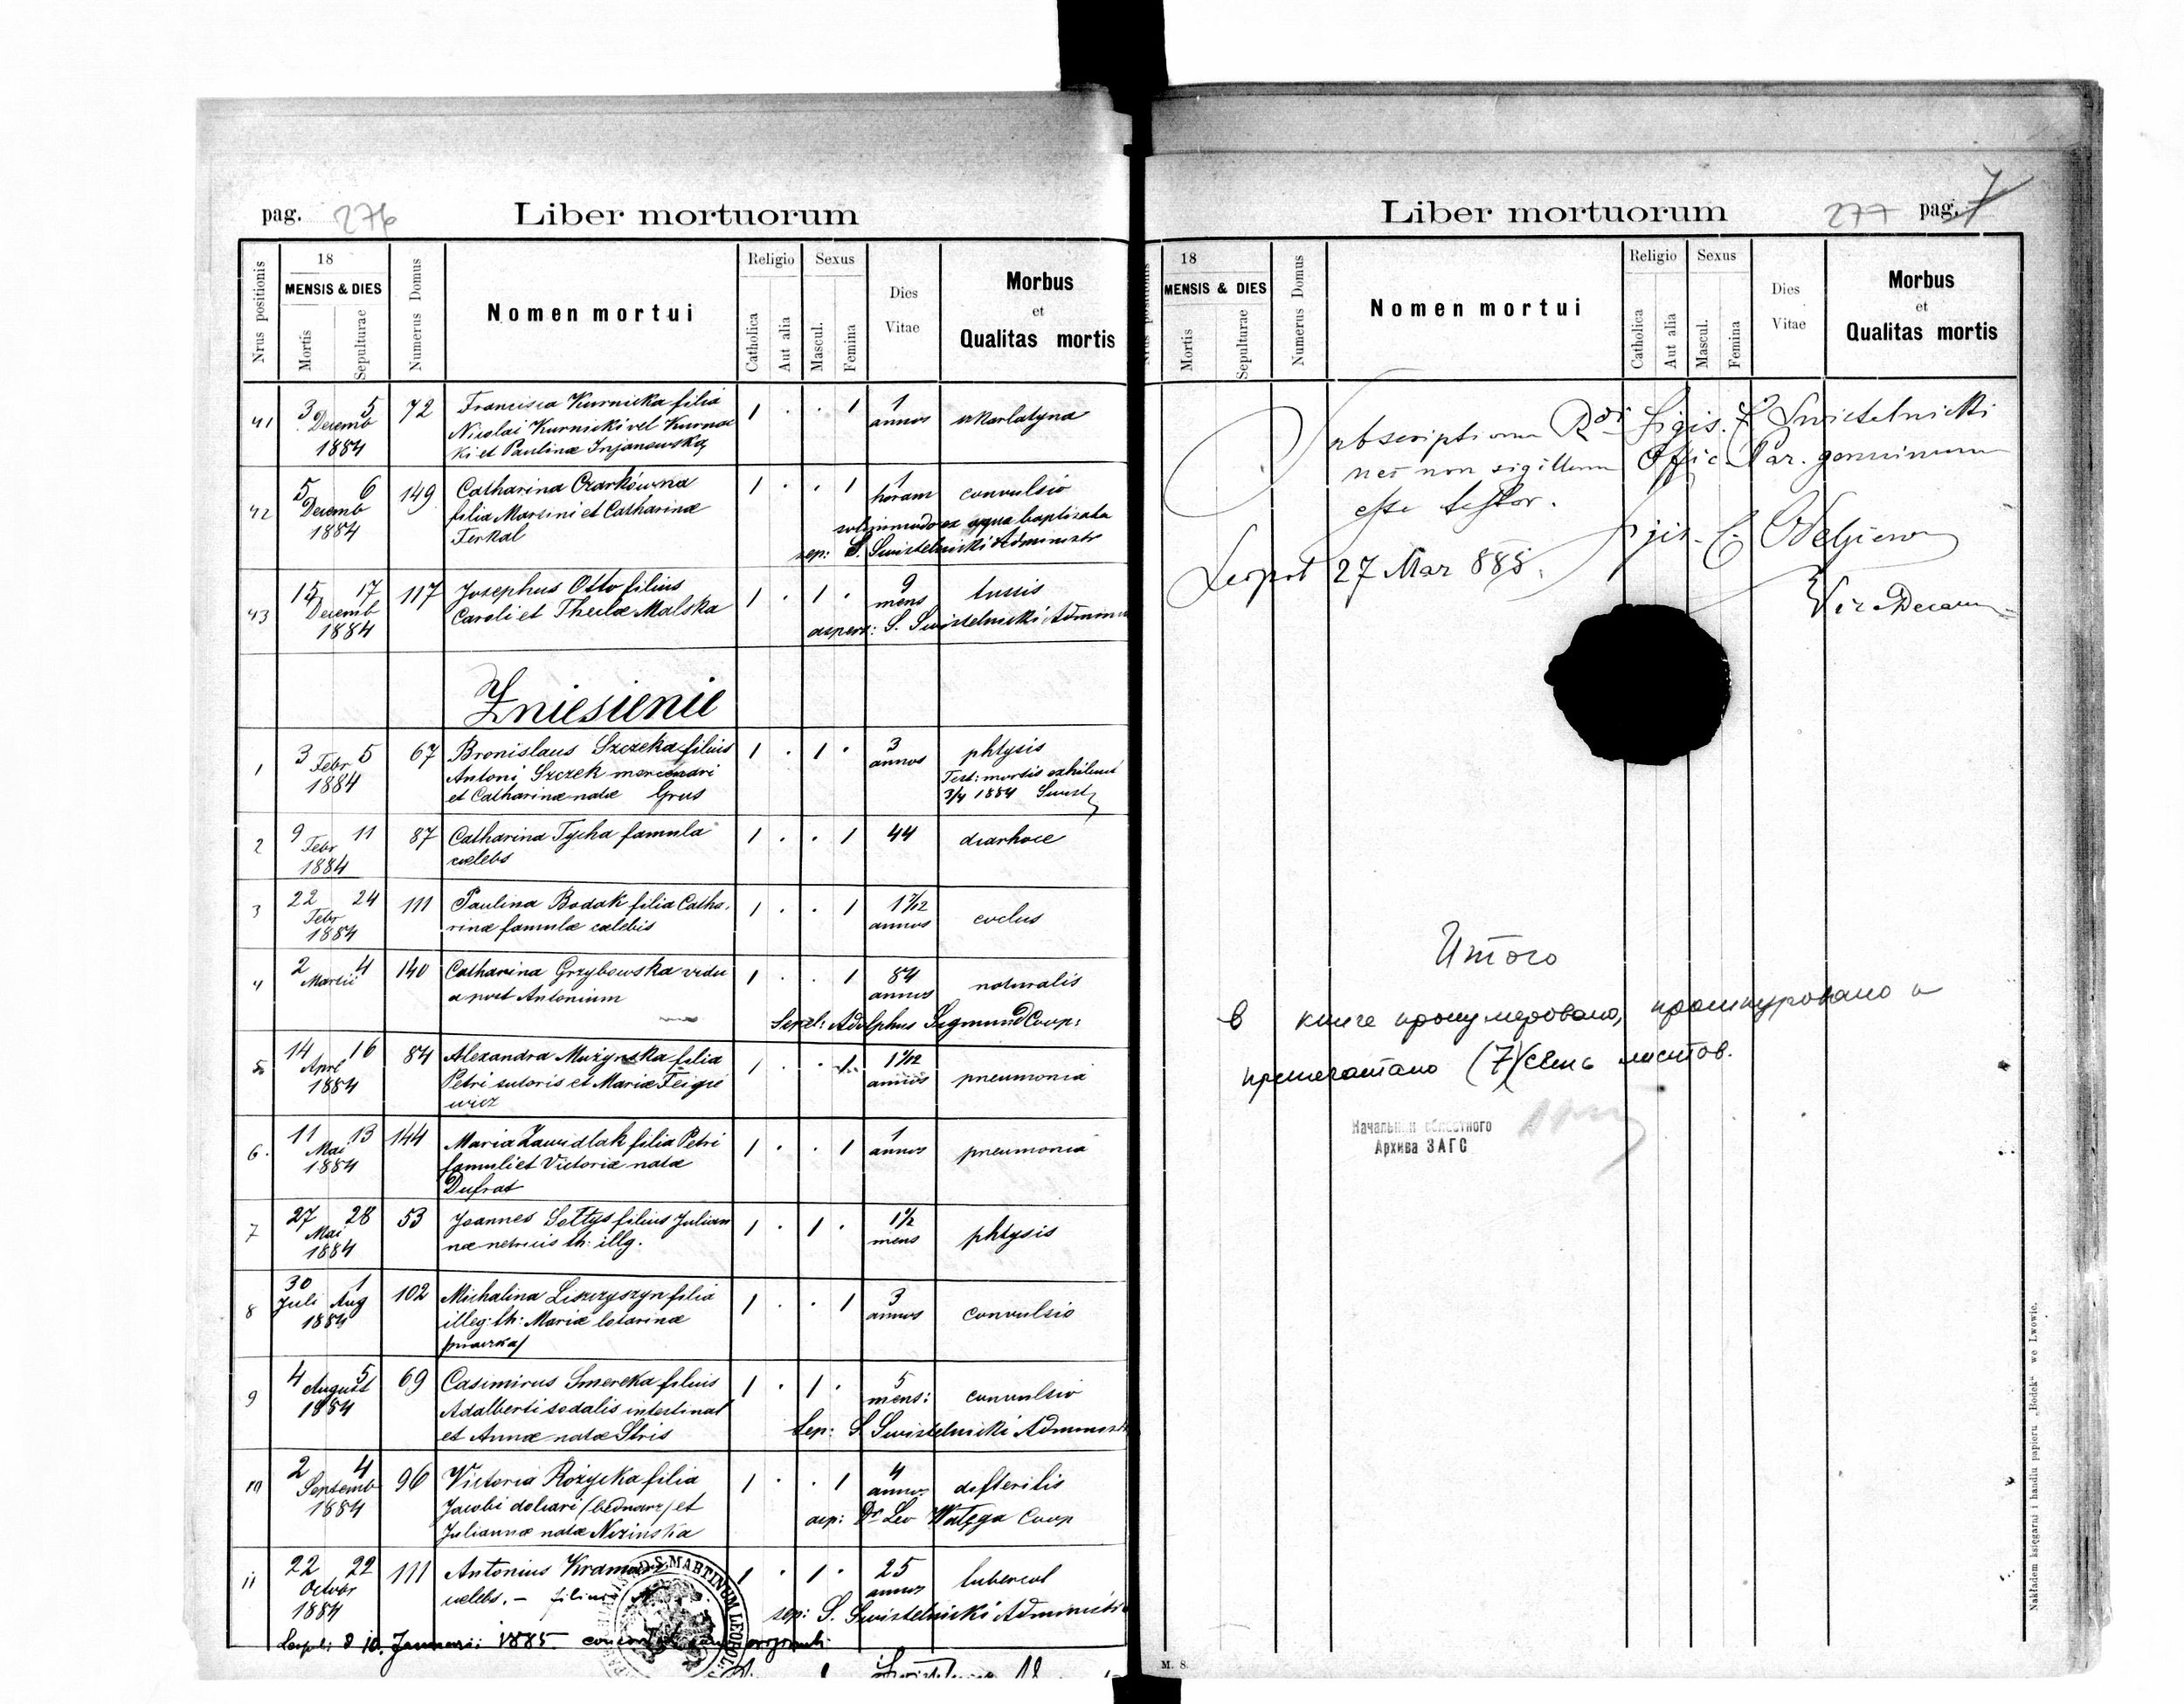 pag. 276 Liber mortuorum
Nrus positionis
18
MENSIS & DIES
Mortis
Sepulturae
Numerus Domus
Nomen mortui
Religio
Catholica
Aut alia
Sexus
Mascul.
Femina
Dies
Vitae
Morbus
et
Qualitas mortis
41 3 5 72 Francisca Kurnicka filia 1 . . 1 1
Decemb Nicolai Kurnicki vel Kurnac annos skarlatyna
1884 ki et Paulinæ
42 5 6 149 Catharina Czarkówna 1 . . 1 1
Decemb filia Marcini et Catharinæ horam convulsio
1884 Ferkal ex aqua baptisata
sep: S. Swistelnicki Administr
43 15 17 117 Josephus Otto filius 1 . 1 . 9 tussis
Decemb Caroli et Theclæ Malska mens
1884 aspers: S. Swistelnicki
Zniesienie
1 3 Febr 5 67 Bronislaus Szczeka filius 1 . 1 . 3 phtysis
1884 Antoni Szczek mercenari annos Test: mortis exhibuit
et Catharinæ natæ Grus 3/4 1884 Swist
2 9 11 87 Catharina Tycha famula 1 . . 1 44 diarhoee
Febr cælebs
1884
3 22 24 111 Paulina Bodak filia Catha- 1 . . 1
Febr rinæ famulæ cælebis annos
1884
4 2 4 140 Catharina Grzybowska vidu 1 . . 1 84 naturalis
Martii a post Antonium annos
Sepel: Adolphus Sigmund Coop:
5 14 16 84 Alexandra filia 1 . . 1
April Petri sutoris et Mariæ Feigie annos pneumonia
1884 wicz
6. 11 13 144 Maria Zawidlak filia Petri 1 . . 1 1 pneumonia
Mai famuli et Victoriæ natæ annos
1884 Dufrat
7 27 28 53 Joannes Sołtys filius Julian 1 . 1 . 1½ phtysis
Mai næ th: illg. mens
1884
8 30 1 102 Michalina Liszczyszyn filia 1 . . 1 3 convulsio
Juli Aug illeg: th: Mariæ lotarinæ annos
1884 praczka/
9 4 5 69 Casimirus Smereka filius 1 . 1 . 5 convulsio
August Adalberti sodalis mens:
1884 et Annæ natæ Stris Sep: S Swistelnicki Administr
10 2 4 96 Victoria Rożycka filia 1 . . 1 4 difteritis
Septemb Jacobi doliari /bednarz/ et annos
1884 Juliannæ natæ asp: Dr Leo Wałęga Coop
11 22 22 111 Antonius 1 . 1 . 25 tubercul
Octobr celebs. – filius annos
1884 sep: S. Swistelnicki Administr
Leopl: d 10. Januarii 1885
D. S. MARTINUM LEOPOL:
Liber mortuorum 277 pag. 7
18
MENSIS & DIES
Mortis
Sepulturae
Numerus Domus
Nomen mortui
Religio
Catholica
Aut alia
Sexus
Mascul.
Femina
Dies
Vitae
Morbus
et
Qualitas mortis
Subscriptionem Rdi Sigis. Swistelnicki
nec non sigillum Offic. Par. genuinum
esse testor.
Leopol 27 Mar 885.
Vice Decan
Итого
в книге пронумеровано, прошнуровано и
припечатано (7) семь листов.
Начальник областного
Архива ЗАГС
Nakładem księgarni i handlu papieru „Bodek“ we Lwowie.
M. 8.